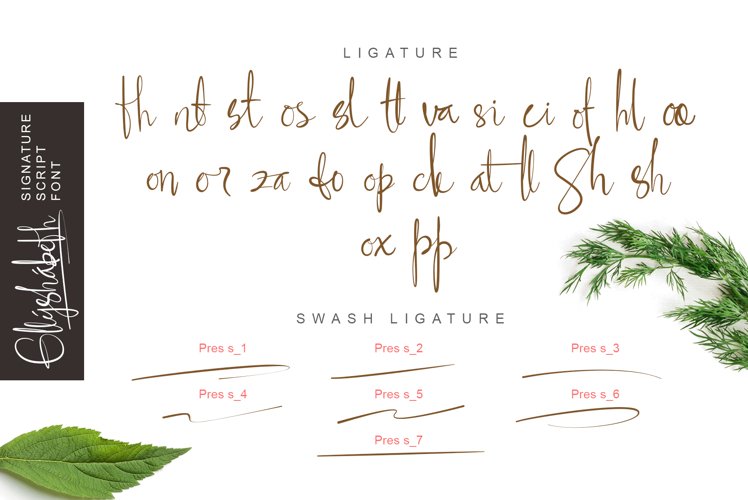 LIGATURE
th nt st os sl tt va si ci of hl oo
on or za fo op ck at ll Sh sh
ox pp
SWASH LIGATURE
Pres s_1 Pres s_2 Pres s_3
Pres s_4 Pres s_5 Pres s_6
Pres s_7
SIGNATURE
SCRIPT
FONT
Ellyshabeth